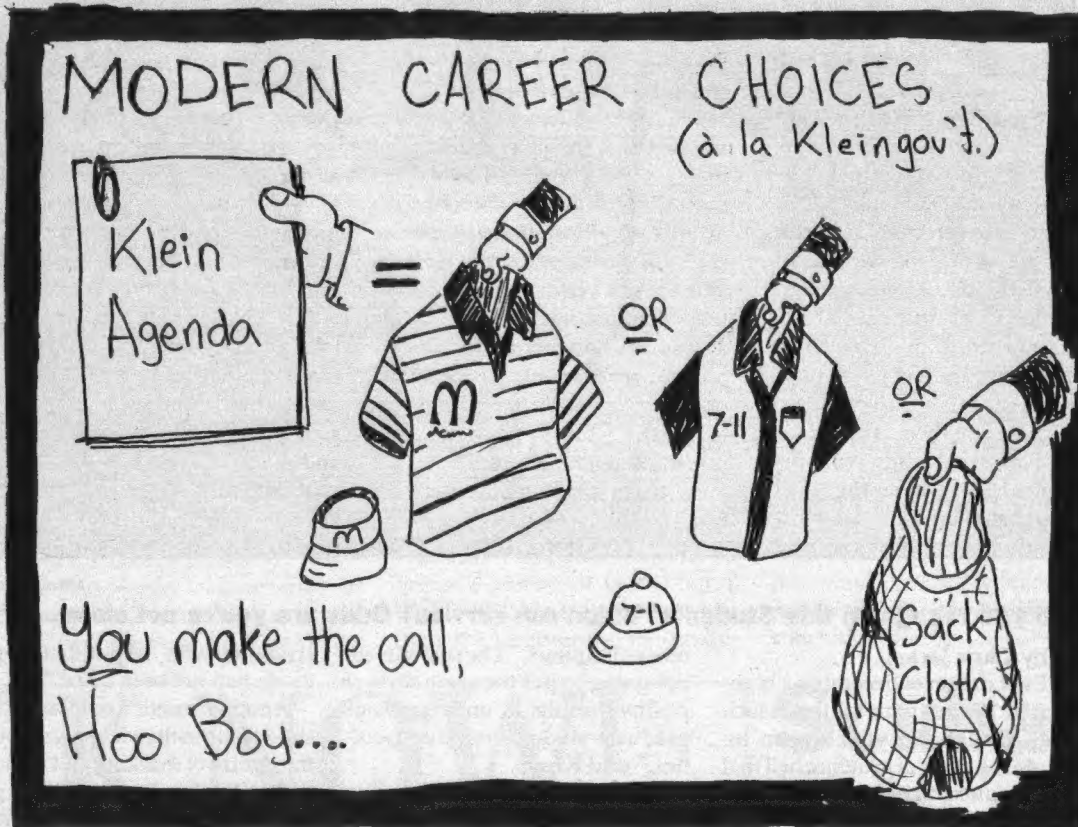 MODERN CAREER CHOICES
(à la Klein gov't.)
Klein
Agenda
=
M
OR
7-11
OR
M
7-11
"Sack
Cloth"
You make the call.
Hoo Boy....